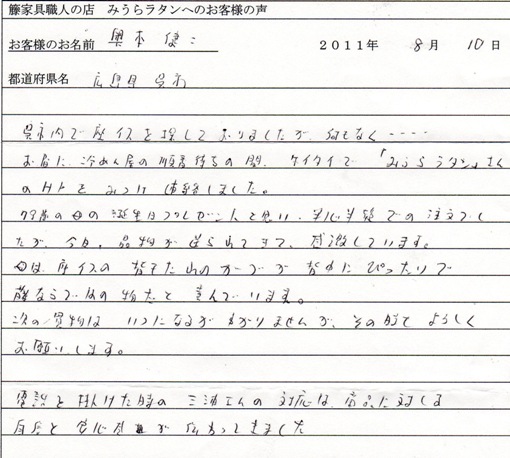 籐家具職人の店　みうらラタンへのお客様の声
お客様のお名前　奥本 健二　２０１１年　8月　10日
都道府県名　広島県 呉市
呉市内で座イスを探しておりましたが、何もなく‥‥
お昼に、冷めん屋の順番待ちの間、ケイタイで「みうらラタン」さん
のHPをみつけ 連絡しました。
79歳の母の誕生日プレゼントと思い、半信半疑での注文でし
たが、今日、品物が送られてきて、感激しています。
母は、座イスの背もたれのカーブが背中にぴったりで
籐ならではの物だと喜んでいます。
次の買物は いつになるかわかりませんが、その時で よろしく
お願いします。
電話を掛けた時の 三浦さんの 対応は、商品に対しる
自信と 安心感が 伝わってきました